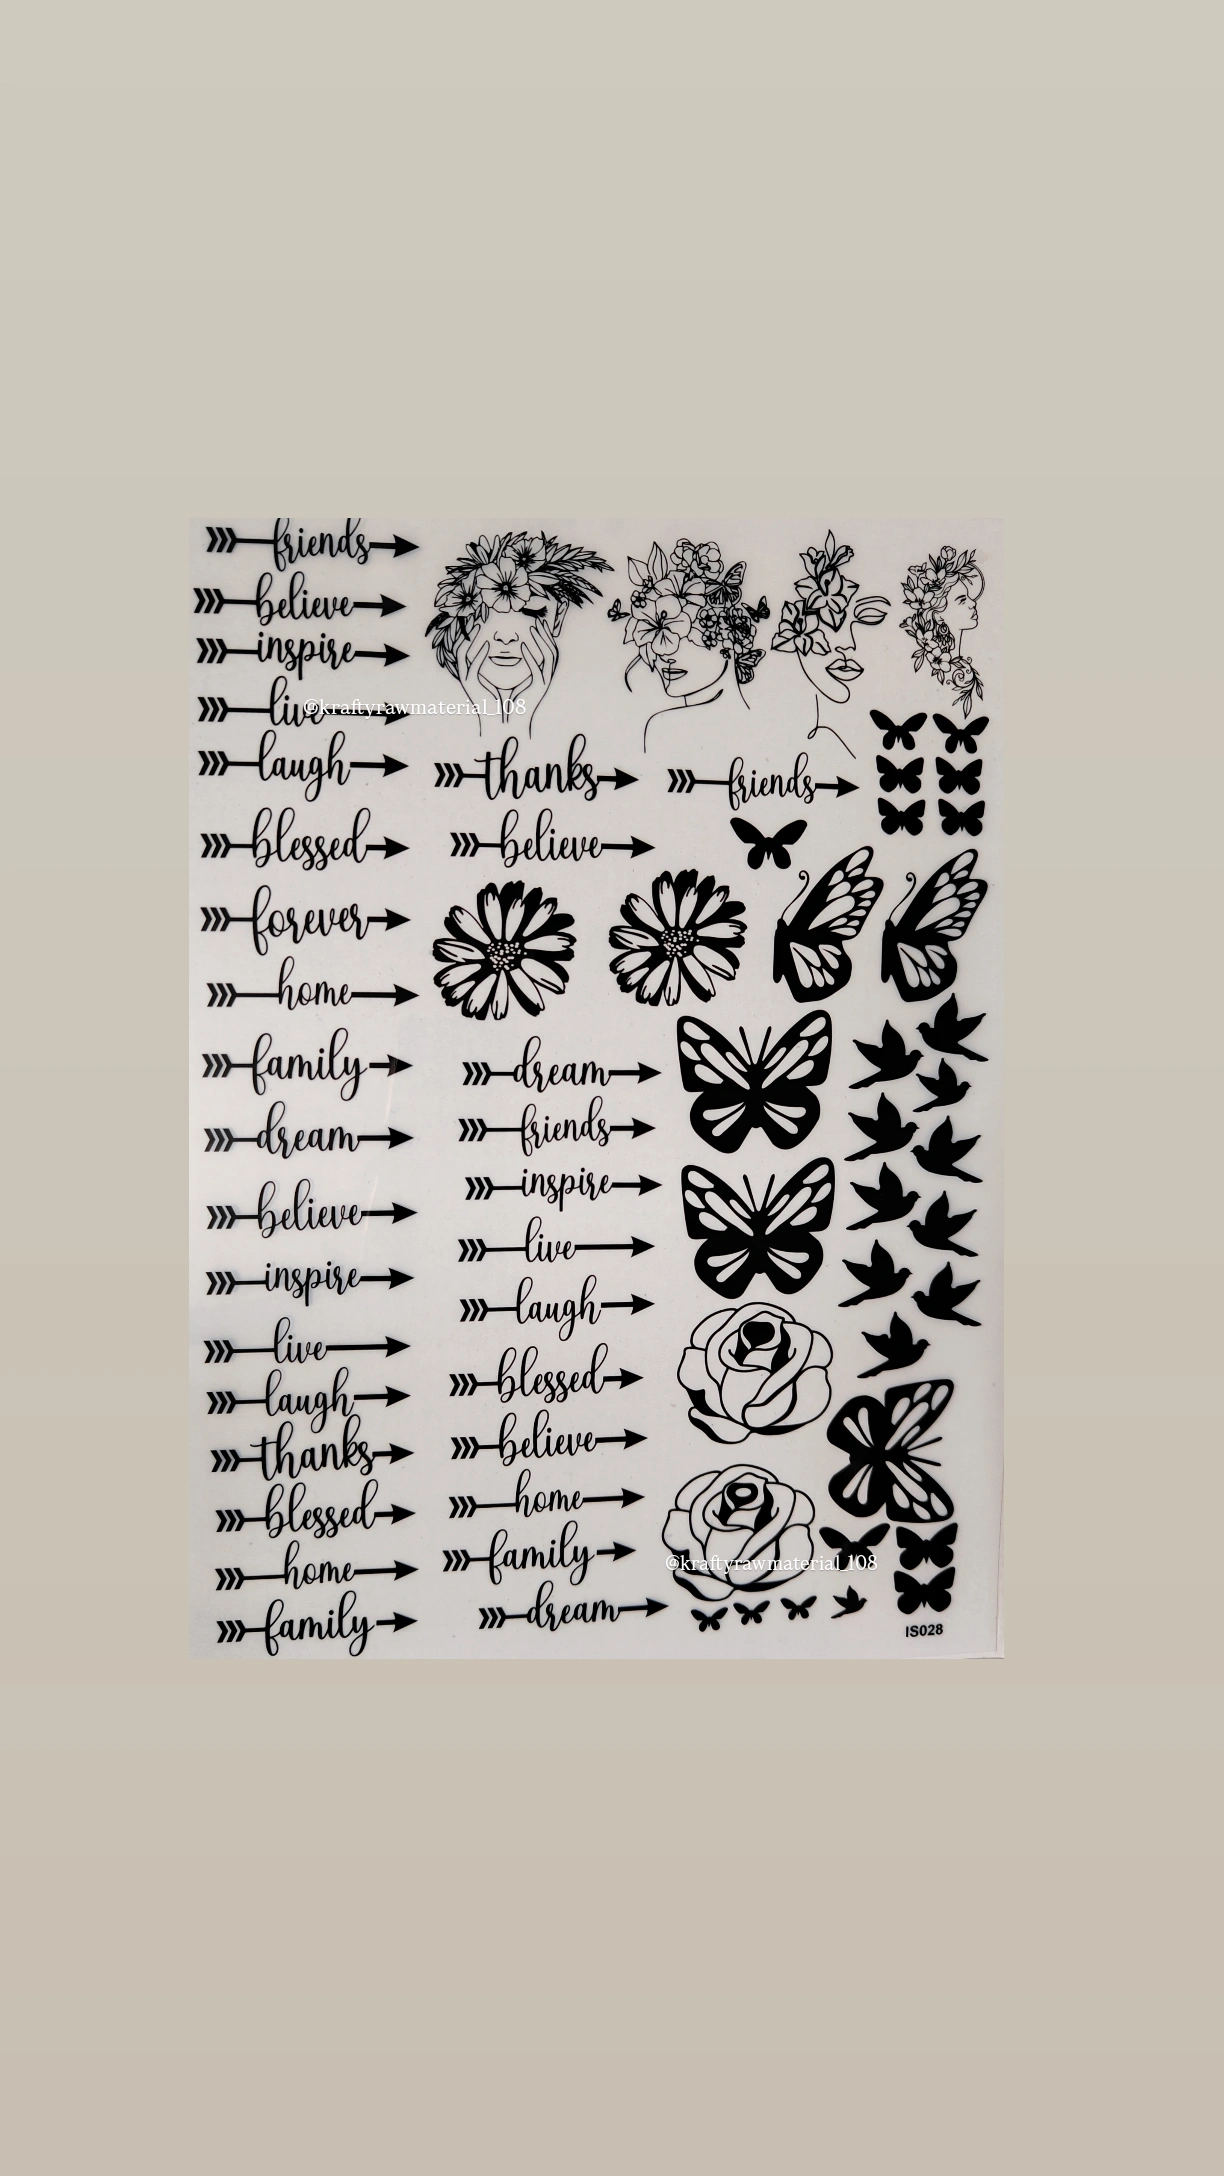 friends
believe
inspire
live
@kraftyrawmaterial_108
laugh
blessed
forever
home
family
dream
believe
inspire
live
laugh
thanks
blessed
home
family
thanks
friends
believe
dream
friends
inspire
live
laugh
blessed
believe
home
family
dream
@kraftyrawmaterial_108
IS028